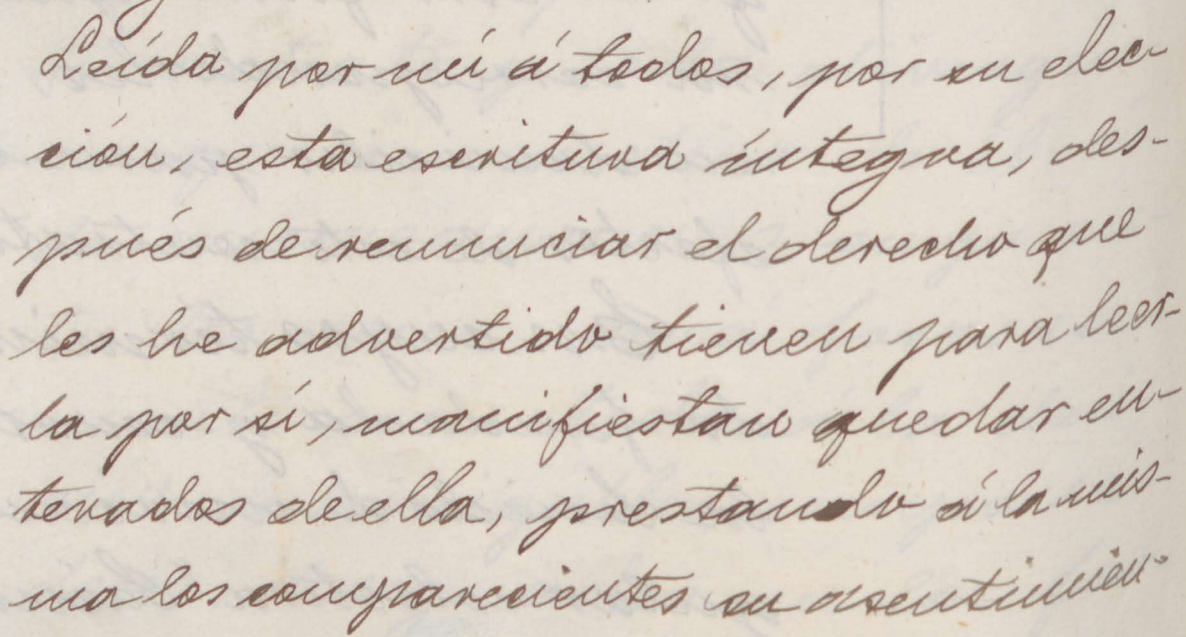 Leída por mí á todos, por su elec-
ción, esta escritura íntegra, des-
pués de renunciar el derecho que
les he advertido tienen para leer-
la por sí, manifiestan quedar en-
terados de ella, prestando á la mis-
ma los comparecientes su asentimien-